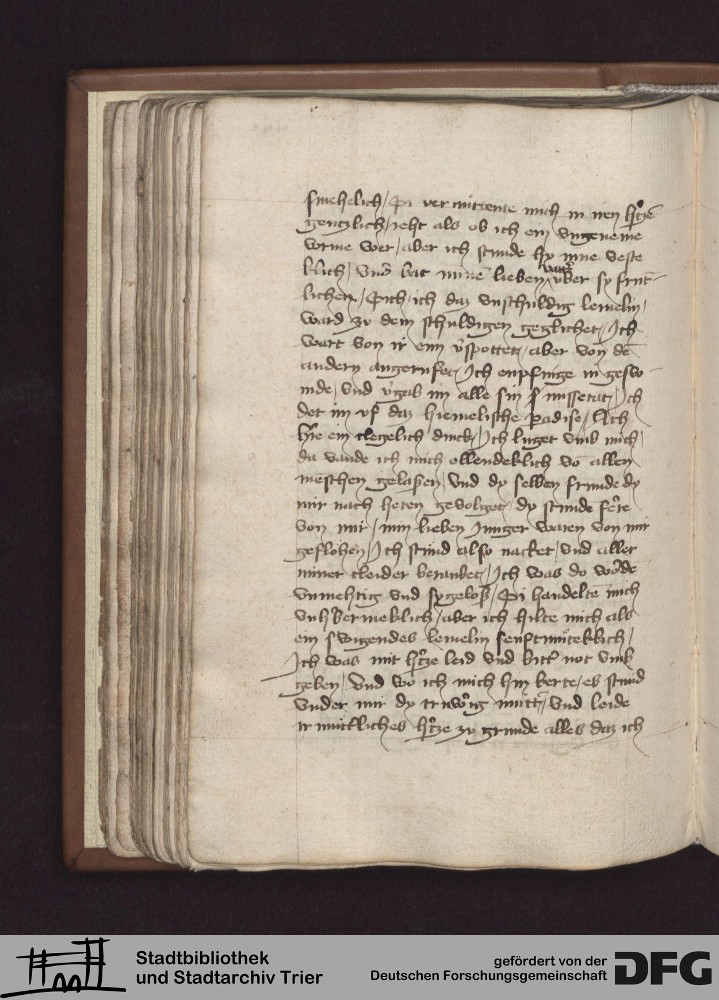 smehelich / Si vernüttente mich in iren hʼtzē
gentzlich / reht als ob ich ein vngeneme
wrme wer / aber ich stunde hy inne veste
klich / vnd bat minē lieben vattʼ vber sy frnt
lichen / Sich / ich daz vnschuldig lemelin /
ward zv dem schuldigen geglichet / Ich
wart von ir eim vʼspottet / aber von dē
andern angeruffet / Ich enpfinge in geswi
nde / vnd vʼgab im alle sin missetat / Ich
det im vf daz hiemelische padise / Ach
hʼre ein clegelich dinck / Ich luget vmb mich /
da vande ich mich ellendeklich vō allen
meschen gelaßen / vnd dy selben frunde dy
mir nach heten gevolget / dy stunde fēre
von mir / min lieben Iunger waren von mir
geflohen / Ich stund also nacket / vnd aller
miner cleider beraubet / Ich was do wōrde
vnmehtig vnd sygeloß / Si handelte mich
vnhbermeklich / aber ich hilte mich als
ein swigendes lemelin senftmüteklich /
Ich was mit hʼtze leid vnd bittʼ not vmb
geben / vnd wo ich mich hin kerte / es stund
vnder mir dy trwrig muttʼ / vnd leide
ir mütliches hʼtze zv grunde alles daz ich
Stadtbibliothek
und Stadtarchiv Trier
gefördert von der
Deutschen Forschungsgemeinschaft
DFG